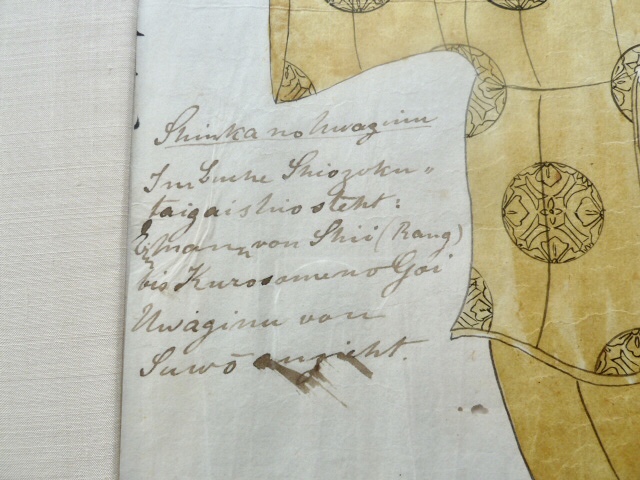 Shinka no Uwaginu
Im Buche Shiozoku-
taigaishio steht:
man von Shii (Rang)
bis Kurosomeno Goi
Uwaginu von
Suwō anzieht.